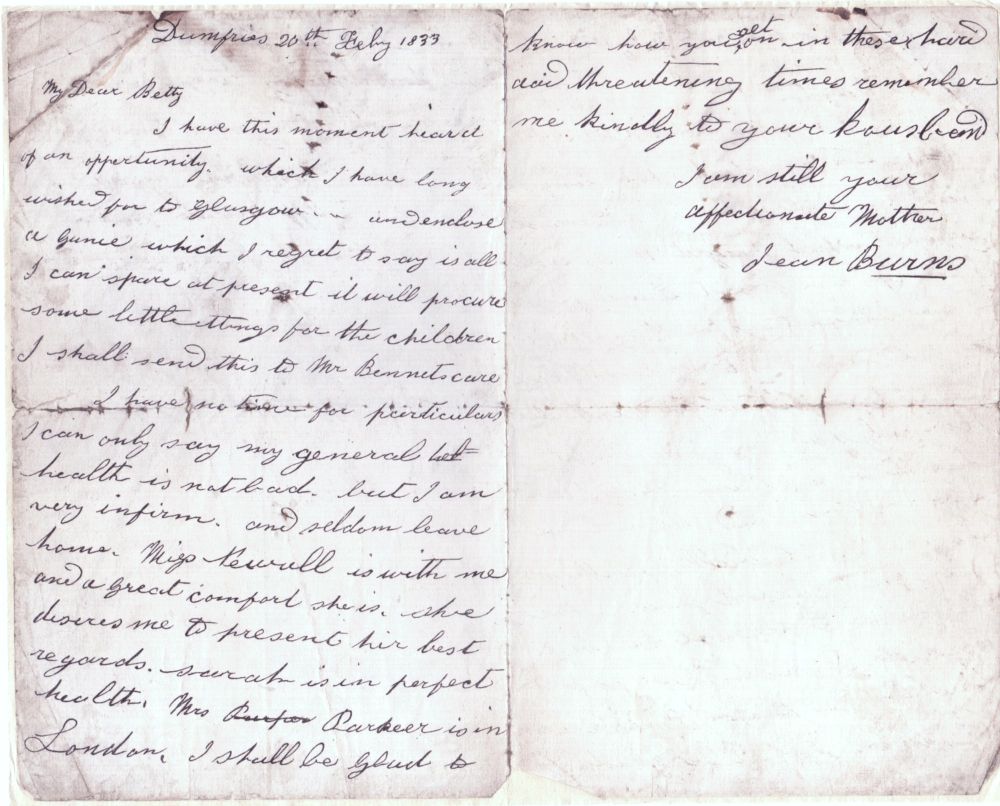 Dumfries 20th Feby 1833
My Dear Betty
I have this moment heard
of an opportunity. which I have long
wished for to Glasgow. - and enclose
a Gunie which I regret to say is all
I can spare at present it will procure
some little ttings for the children
I shall send this to Mr Bennets care
I have no time for particulars
I can only say my general
health is not bad. but I am
very infirm. and seldom leave
home. Miss Newall is with me
and a great comfort she is. she
desires me to present hir best
regards. sarah is in perfect
health. Mrs Parkeer is in
London. I shall be Glad to
know how you get on in these hard
and threatening times remember
me kindly to your housband
I am still your
affectionate Mother
Jean Burns